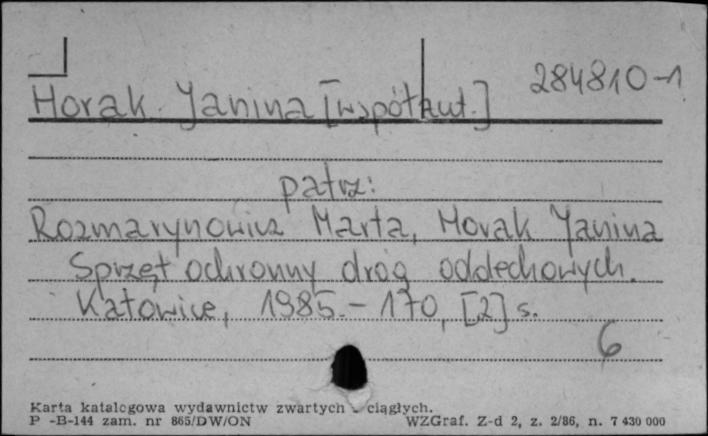 284810-1
Horak Janina [współaut.]
patrz:
Rozmarynowicz Marta, Horak Janina
Sprzęt ochronny dróg oddechowych.
Katowice, 1985. - 170, [2] s.
6
Karta katalogowa wydawnictw zwartych - ciągłych.
P -B-144 zam. nr 865/DW/ON WZGraf. Z-d 2, z. 2/86, n. 7 430 000